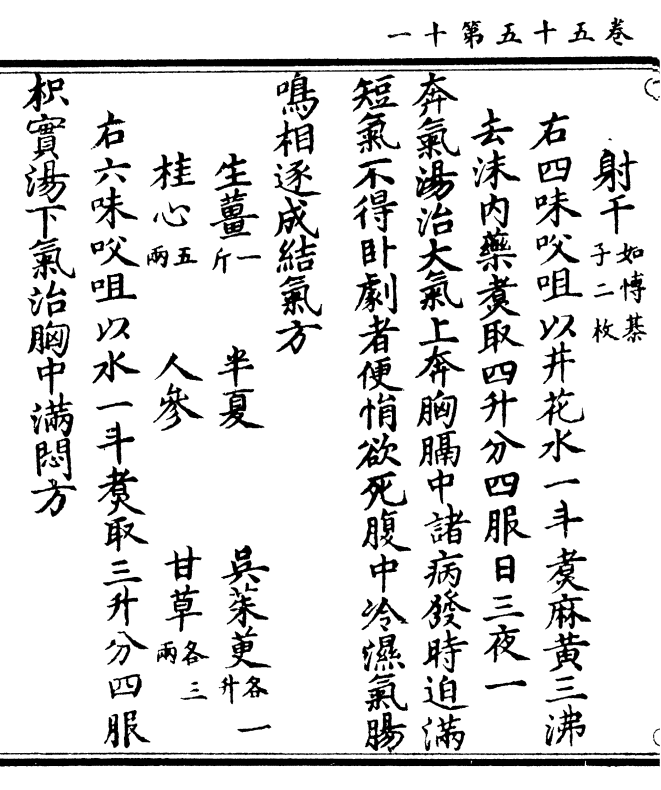 卷五十五第十一
射干如博棊子二枚
右四味㕮咀以井花水一斗煑麻黃三沸
去沫内藥煑取四升分四服日三夜一
奔氣湯治大氣上奔胸膈中諸病發時迫滿
短氣不得卧劇者便悁欲死腹中冷濕氣腸
鳴相逐成結氣方
生薑一斤 半夏 吳茱萸各一升
桂心五兩 人參 甘草各三兩
右六味㕮咀以水一斗煑取三升分四服
枳實湯下氣治胸中滿悶方